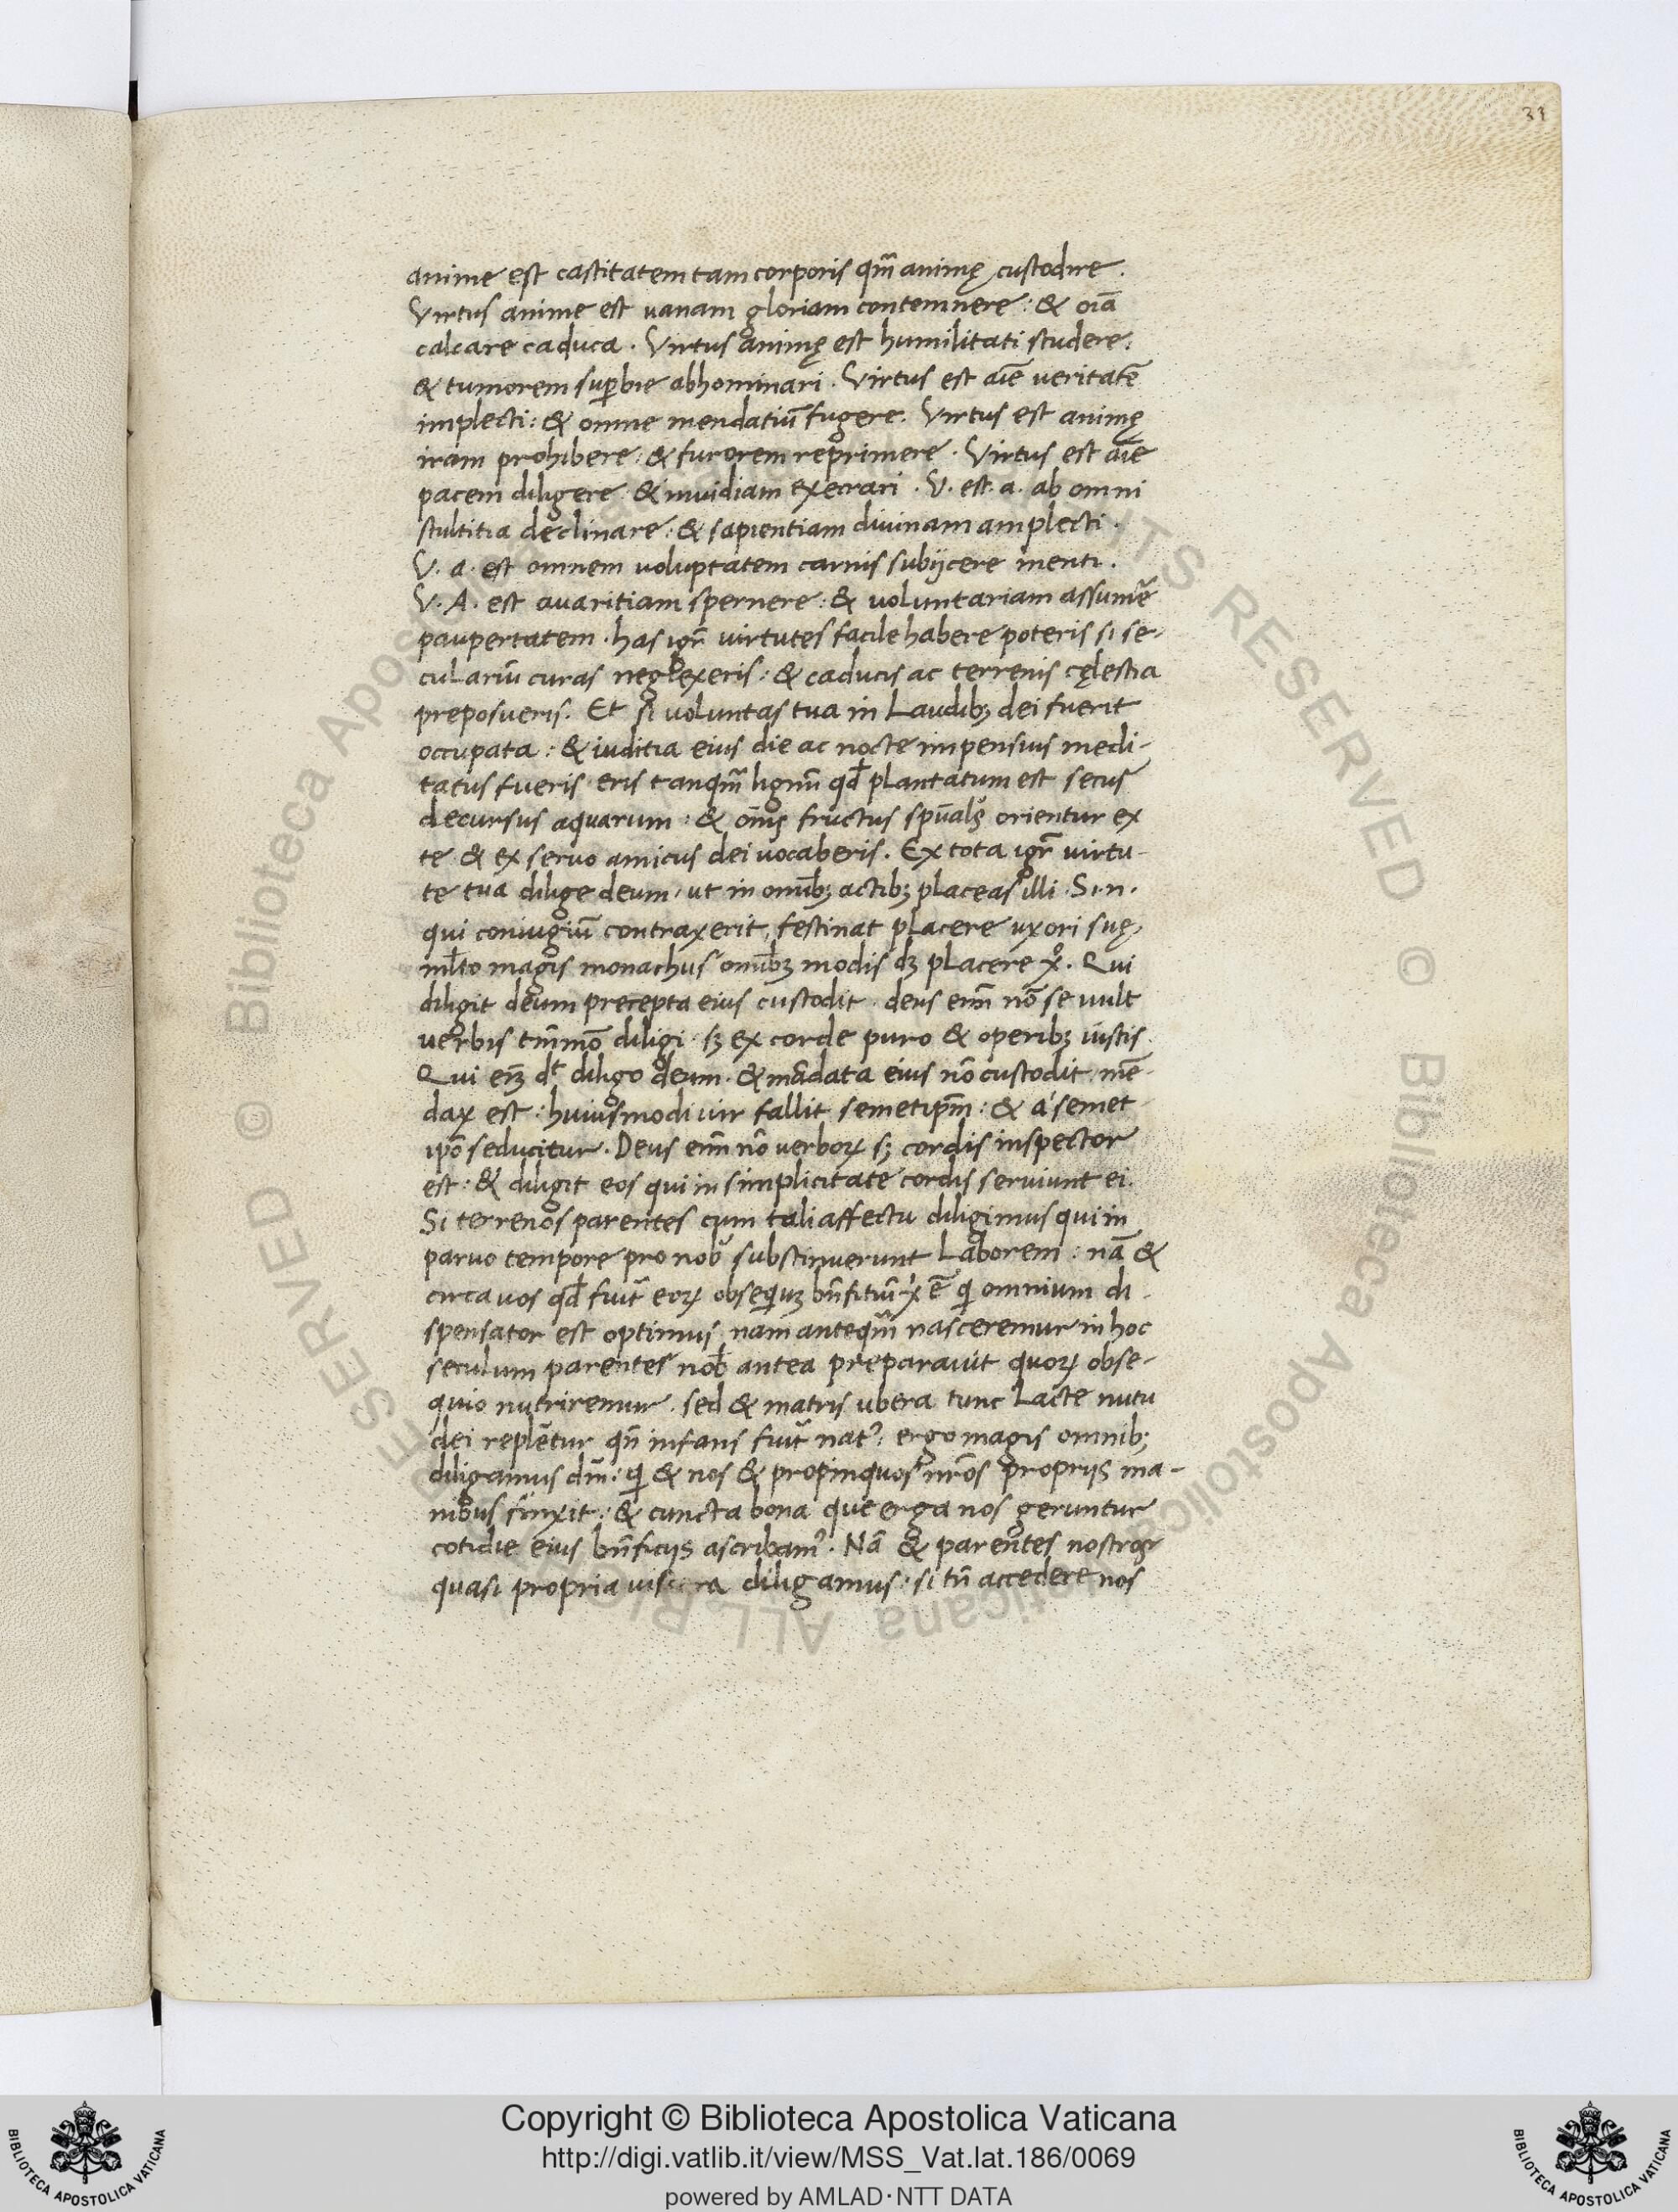 31
anime est castitatem tam corporis qm̃ animę custodire.
Virtus anime est uanam gloriam contemnere: & oı̃a
calcare caduca. Virtus animę est humilitati studere:
& tumorem sup̱bie abhominari. Virtus est aı̃e ueritatẽ
implecti: & omne mendatiũ fugere. Virtus est animę
iram prohibere: & furorem reprimere. Virtus est aı̃e
pacem diligere: & inuidiam execrari. V. est. a. ab omni
stultitia declinare: & sapientiam diuinam amplecti.
V. a. est omnem uoluptatem carnis subijcere menti.
V. A. est auaritiam spernere: & voluntariam assumẽ
paupertatem. has igr̃ uirtutes facile habere poteris si se-
culariũ curas neglexeris: & caducis ac terrenis cęlestia
preposueris. Et si uoluntas tua in Laudibꝫ dei fuerit
occupata: & iuditia eius die ac nocte impensius medi-
tatus fueris eris tanqm̃ lignũ qđ plantatum est secus
decursus aquarum: & om̃s fructus sp̃ualꝭ orientur ex
te & ex seruo amicus dei uocaberis. Ex tota igr̃ uirtu-
te tua dilige deum, ut in omĩbꝫ actibꝫ placeas illi. Si. n.
qui coniugiũ contraxerit, festinat placere uxori suę,
ml̃to magis monachus omĩbꝫ modis dꝫ placere x̊. Qui
diligit deum precepta eius custodit. deus enĩ nõ se uult
uerbis tm̃mõ diligi. sꝫ ex corde puro & operibꝫ iustis.
Qui enĩ dt̃ diligo deum. & mãdata eius nõ custodit mẽ-
dax est: huiusmodi uir fallit semetip̃m: & a semet
ip̃o seducitur. Deus enĩ nõ verboꝝ sꝫ cordis inspector
est: & diligit eos qui in simplicitate cordis seruiunt ei.
Si terrenos parentes cum tali affectu diligimus qui in
paruo tempore pro nob̃ substinuerunt Laborem: nã &
circa uos qđ fuit̃ eoꝝ obsequiũ bñfitiũ x̃ı ẽ qi omnium di-
spensator est optimus nam anteqm̃ nasceremur in hoc
seculum parentes nob̃ antea preparauit quoꝝ obse-
quio nutriremur. sed & matris ubera tunc Lacte nutu
dei replẽtur qñ infans fuit̃ natꝰ: ergo magis omnibꝫ
diligamus dm̃: qi & nos & propinquos nr̃os proprijs ma-
nibus finxit: & cuncta bona que erga nos geruntur
cotidie eius bñficijs ascribamꝰ. Nã & parentes nostros
quasi propria uiscera diligamus: si tñ accedere nos
© Biblioteca Apostolica Vaticana ALL RIGHTS RESERVED © Biblioteca Apostolica Vaticana ALL RIGHTS RESERVED
BIBLIOTECA APOSTOLICA VATICANA
Copyright © Biblioteca Apostolica Vaticana
http://digi.vatlib.it/view/MSS_Vat.lat.186/0069
powered by AMLAD·NTT DATA
BIBLIOTECA APOSTOLICA VATICANA